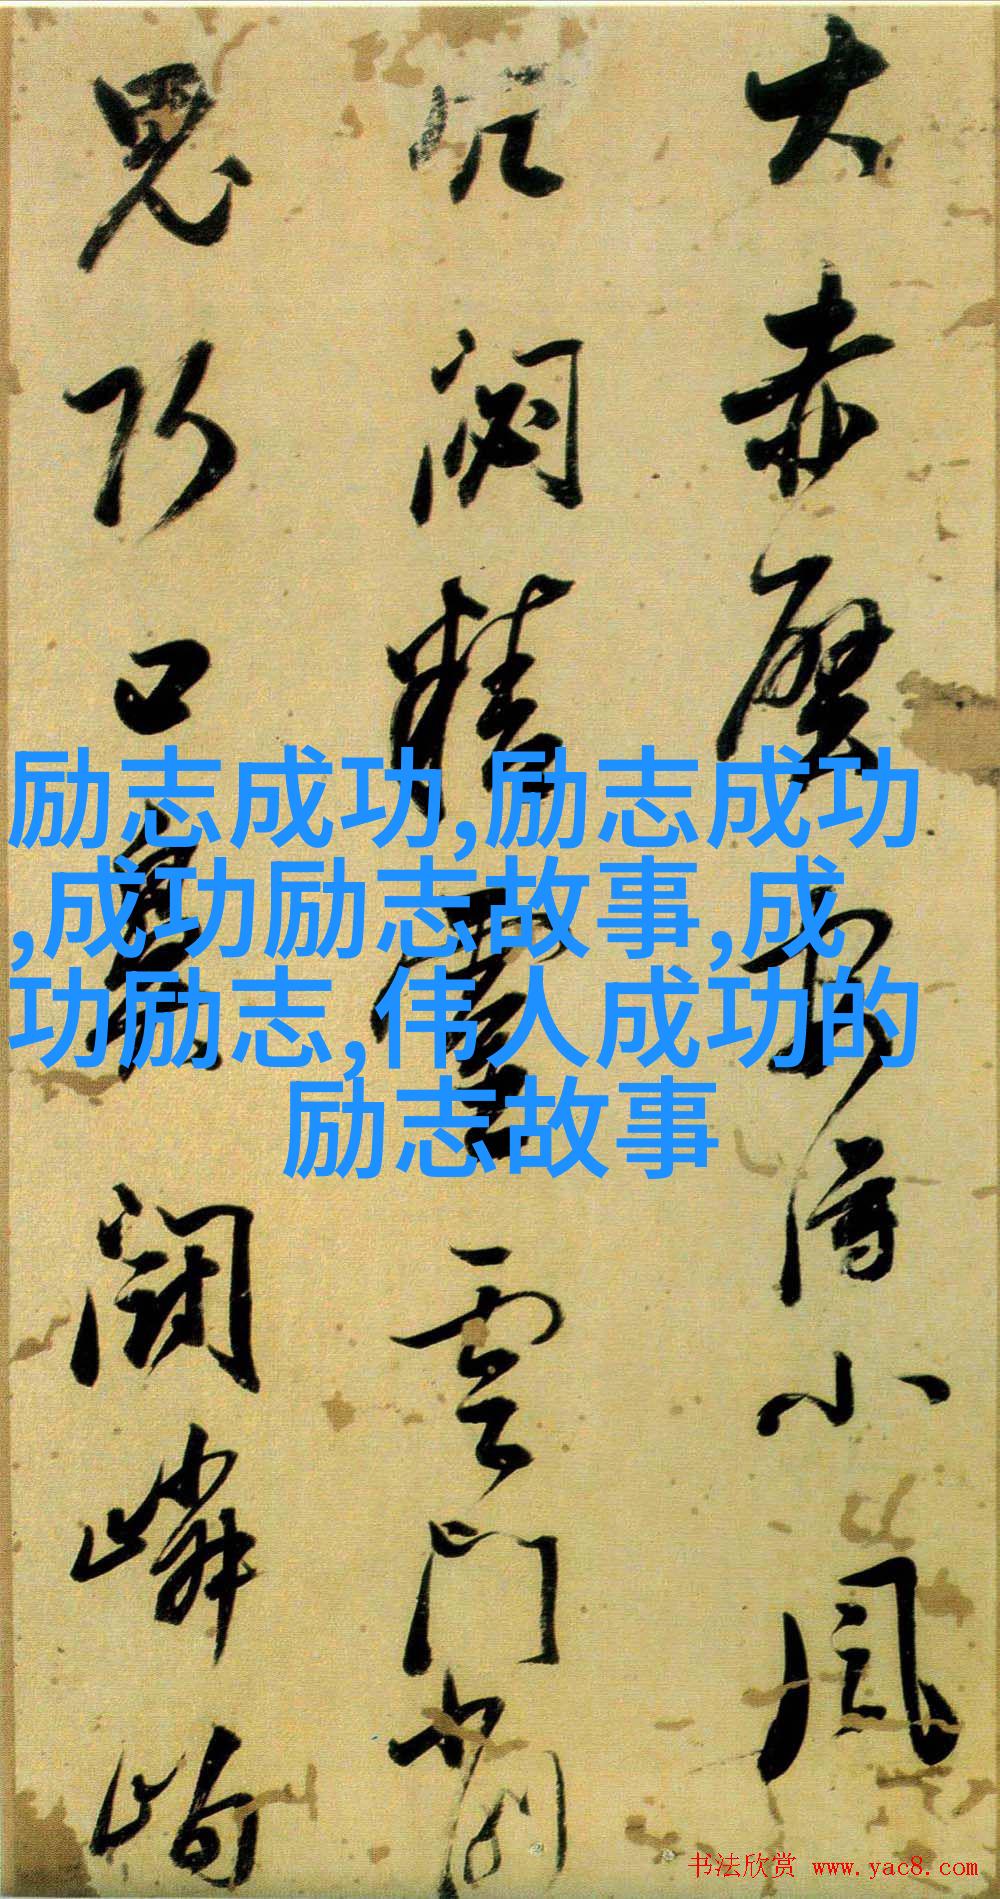 大赤壁小風
閟精靈雲門
思巧口闢嶙峋
励志成功,励志成功
,成功励志故事,成
功励志,伟人成功的
励志故事
书法欣赏 www.yac8.com